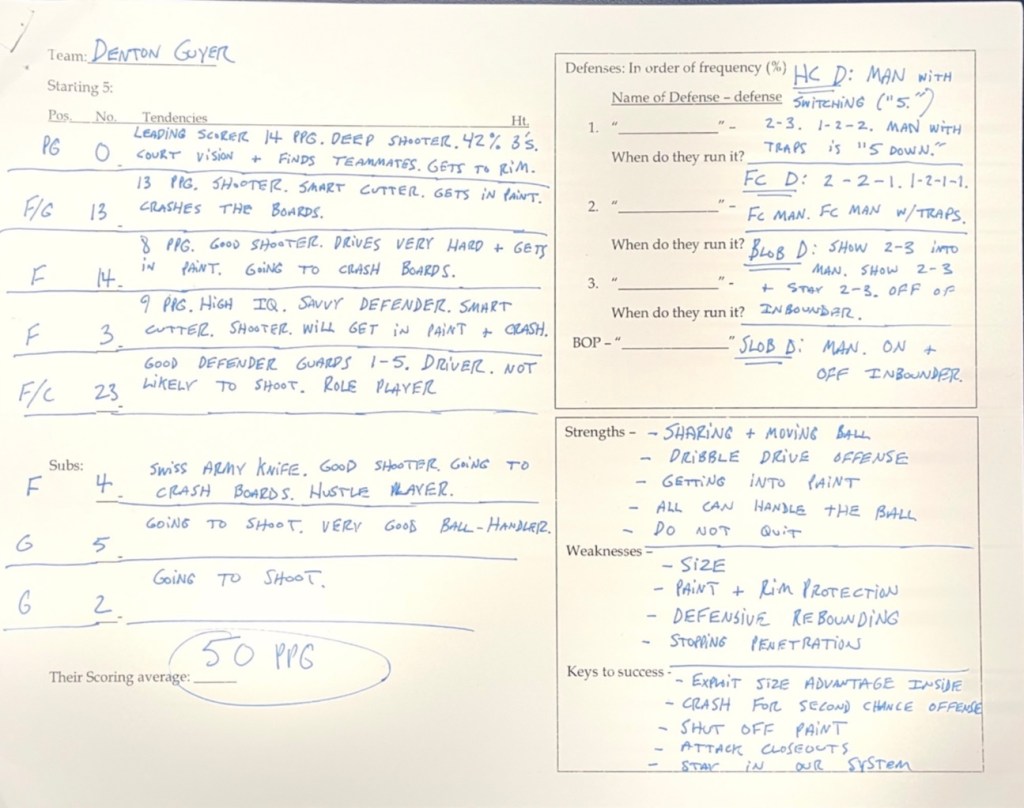 Team: DENTON GUYER
Starting 5:
Pos. No. Tendencies Ht.
PG 0 LEADING SCORER 14 PPG. DEEP SHOOTER. 42% 3'S.
COURT VISION + FINDS TEAMMATES. GETS TO RIM.
F/G 13 13 PPG. SHOOTER. SMART CUTTER. GETS IN PAINT.
CRASHES THE BOARDS.
F 14 8 PPG. GOOD SHOOTER. DRIVES VERY HARD + GETS
IN PAINT. GOING TO CRASH BOARDS.
F 3 9 PPG. HIGH IQ. SAVVY DEFENDER. SMART
CUTTER. SHOOTER. WILL GET IN PAINT + CRASH.
F/C 23 GOOD DEFENDER GUARDS 1-5. DRIVER. NOT
LIKELY TO SHOOT. ROLE PLAYER
Subs:
F 4 SWISS ARMY KNIFE. GOOD SHOOTER. GOING TO
CRASH BOARDS. HUSTLE PLAYER.
G 5 GOING TO SHOOT. VERY GOOD BALL-HANDLER.
G 2 GOING TO SHOOT.
Their Scoring average: 50 PPG
Defenses: In order of frequency (%) HC D: MAN WITH
Name of Defense – defense SWITCHING ("5.")
1. "____" - 2-3. 1-2-2. MAN WITH
When do they run it? TRAPS IS "5 DOWN."
FC D: 2-2-1. 1-2-1-1.
2. "____" - FC MAN. FC MAN W/TRAPS.
When do they run it? BLOB D: SHOW 2-3 INTO
MAN. SHOW 2-3
3. "____" - + STAY 2-3. OFF OF
When do they run it? INBOUNDER.
BOP – "____" SLOB D: MAN. ON +
OFF INBOUNDER.
Strengths – - SHARING + MOVING BALL
- DRIBBLE DRIVE OFFENSE
- GETTING INTO PAINT
- ALL CAN HANDLE THE BALL
- DO NOT QUIT
Weaknesses –
- SIZE
- PAINT + RIM PROTECTION
- DEFENSIVE REBOUNDING
- STOPPING PENETRATION
Keys to success - - EXPLOIT SIZE ADVANTAGE INSIDE
- CRASH FOR SECOND CHANCE OFFENSE
- SHUT OFF PAINT
- ATTACK CLOSEOUTS
- STAY IN OUR SYSTEM